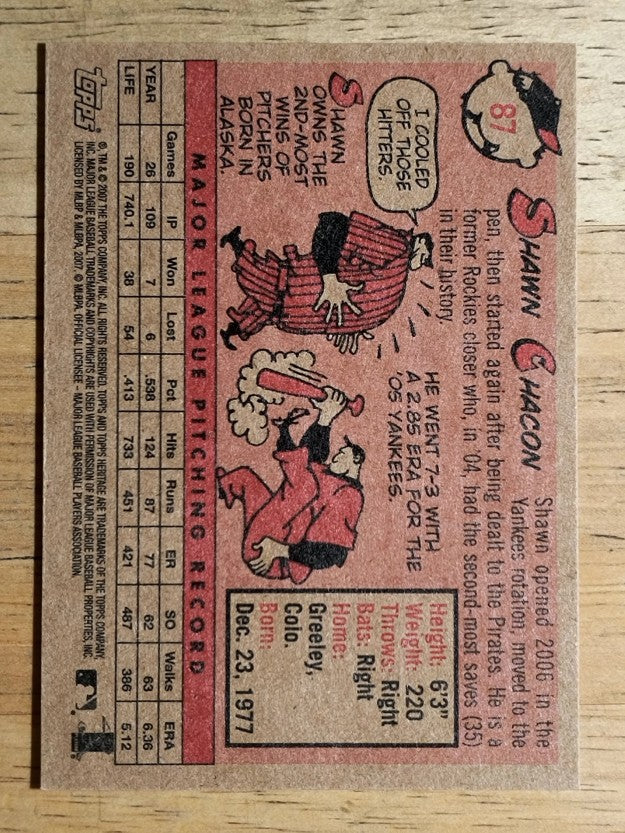 87
SHAWN CHACON
Shawn opened 2006 in the
Yankees rotation, moved to the
pen, then started again after being dealt to the Pirates. He is a
former Rockies closer who, in '04, had the second-most saves (35)
in their history.
I COOLED
OFF THOSE
HITTERS.
SHAWN
OWNS THE
2ND-MOST
WINS OF
PITCHERS
BORN IN
ALASKA.
HE WENT 7-3 WITH
A 2.85 ERA FOR THE
'05 YANKEES.
Height: 6'3"
Weight: 220
Throws: Right
Bats: Right
Home:
Greeley,
Colo.
Born:
Dec. 23, 1977
MAJOR LEAGUE PITCHING RECORD
YEAR Games IP Won Lost Pct Hits Runs ER SO Walks ERA
26 109 7 6 .538 124 87 77 62 63 6.36
LIFE 190 740.1 38 54 .413 733 451 421 487 386 5.12
Topps
®, TM & © 2007 THE TOPPS COMPANY, INC. ALL RIGHTS RESERVED. TOPPS AND TOPPS HERITAGE ARE TRADEMARKS OF THE TOPPS COMPANY,
INC. MAJOR LEAGUE BASEBALL TRADEMARKS AND COPYRIGHTS ARE USED WITH PERMISSION OF MAJOR LEAGUE BASEBALL PROPERTIES, INC.
LICENSED BY MLBP & MLBPA, 2007. © MLBPA, OFFICIAL LICENSEE - MAJOR LEAGUE BASEBALL PLAYERS ASSOCIATION.